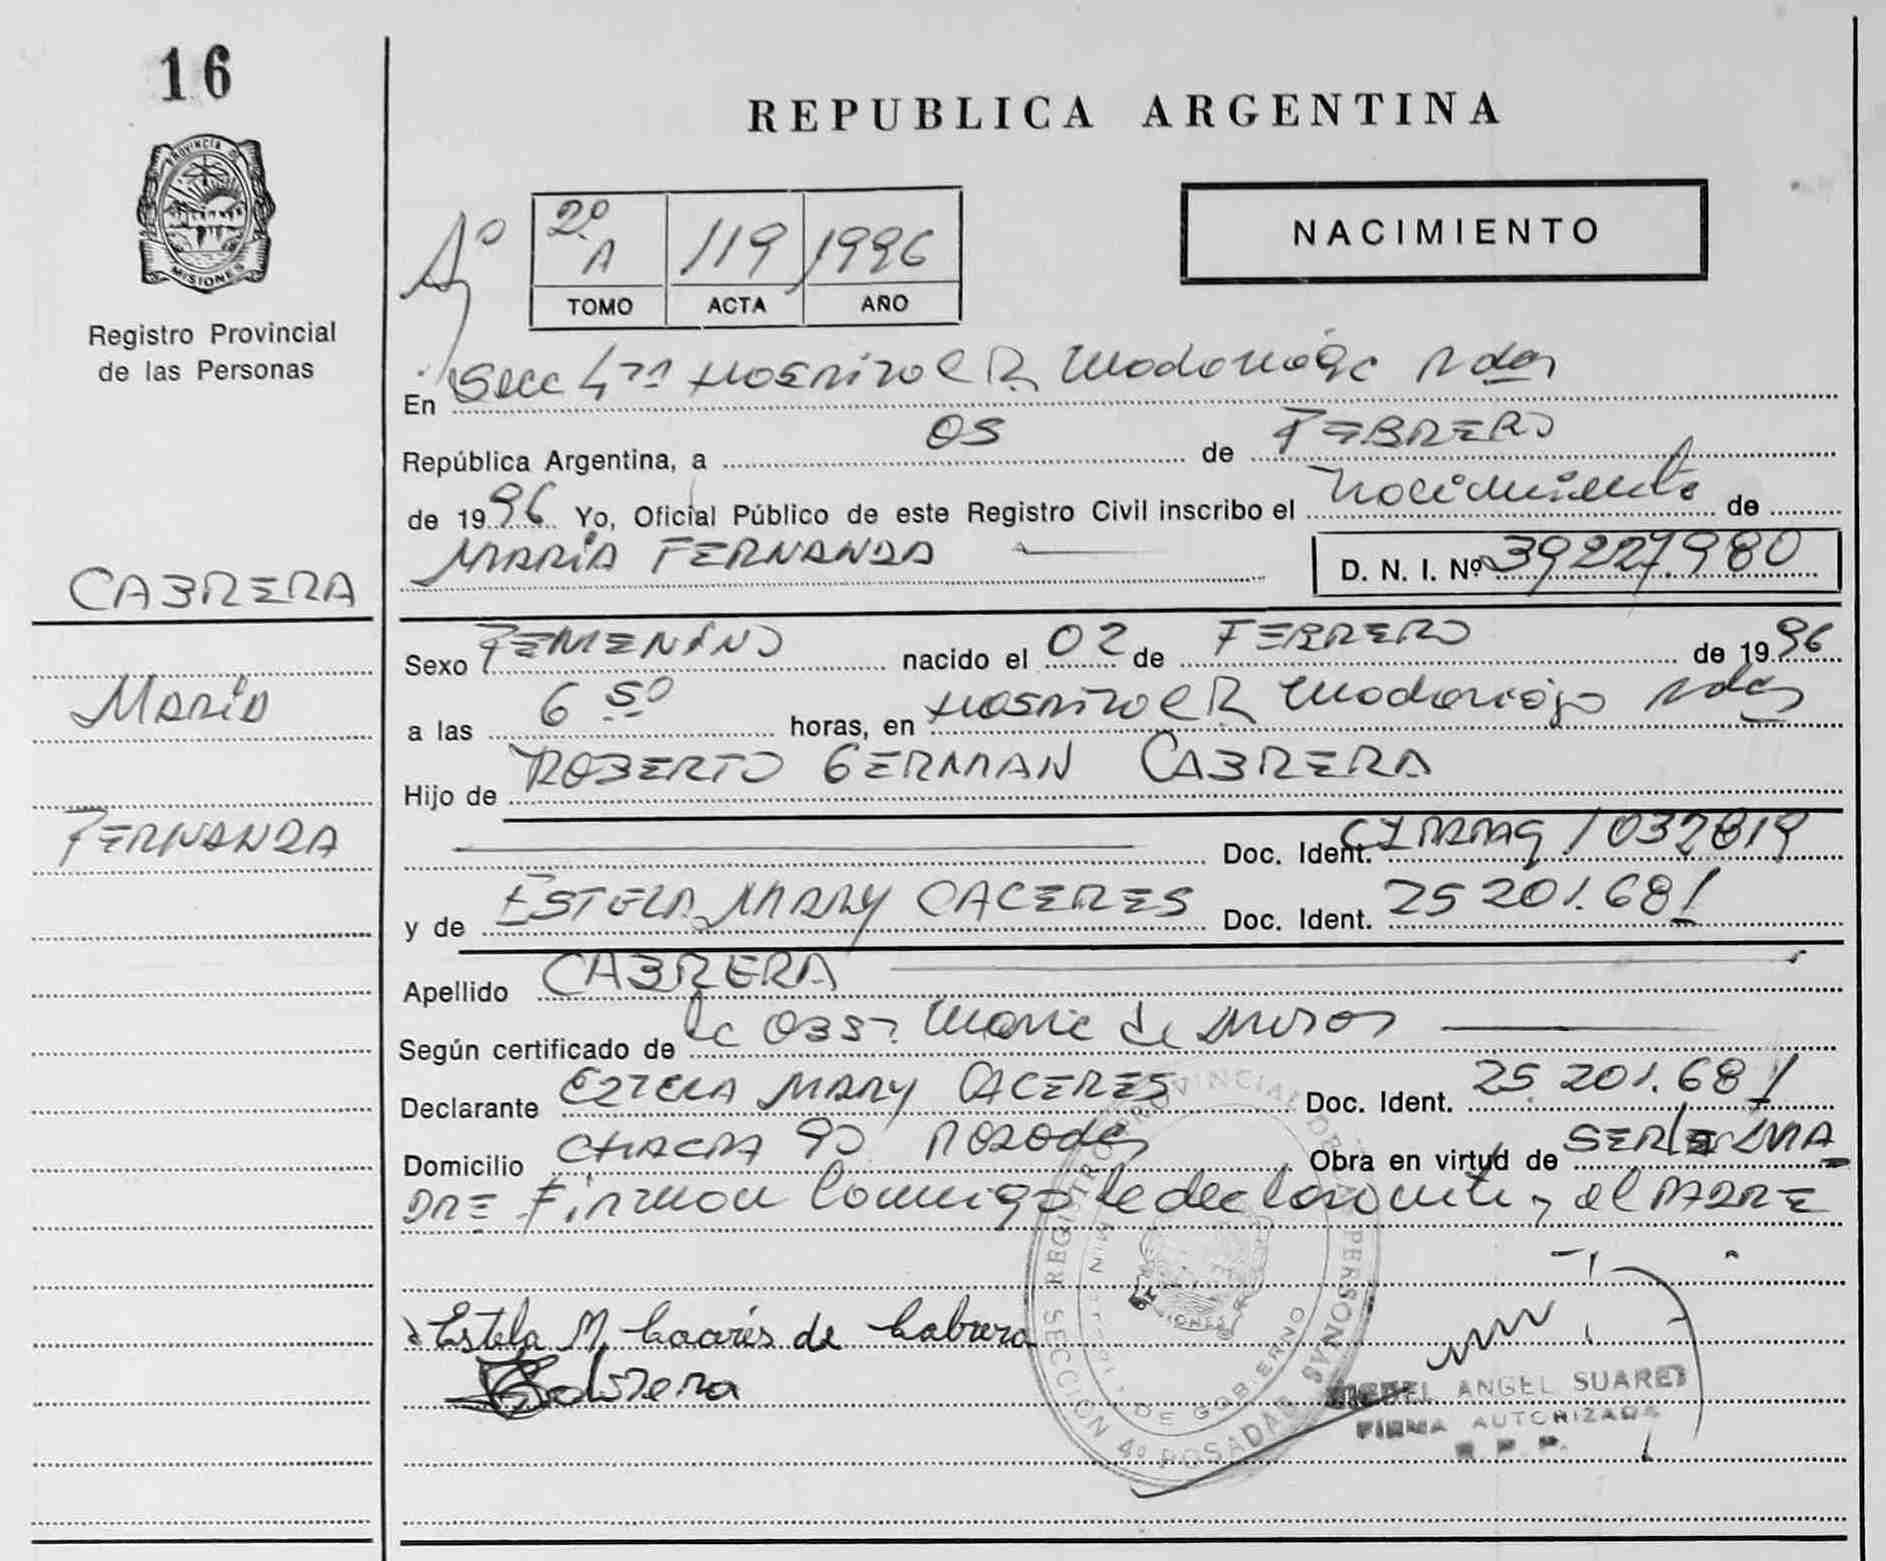 16
PROVINCIA DE
MISIONES
Registro Provincial
de las Personas
CABRERA
María
FERNANDA
REPUBLICA ARGENTINA
2º A 119 1996
TOMO ACTA AÑO
NACIMIENTO
En Secc 4ta Hospital R Madariaga Pdas
República Argentina, a 05 de FEBRERO
de 1996 Yo, Oficial Público de este Registro Civil inscribo el Nacimiento de
MARIA FERNANDA D. N. I. Nº 39227.980
Sexo FEMENINO nacido el 02 de FEBRERO de 1996
a las 6 50 horas, en Hospital R Madariaga Pdas
Hijo de ROBERTO GERMAN CABRERA
Doc. Ident. 1032819
y de ESTELA MARY CACERES Doc. Ident. 25 201.681
Apellido CABRERA
Según certificado de la OBST María de
Declarante EZTELA MARY CACERES Doc. Ident. 25.201.681
Domicilio CHACRA 90 Posadas Obra en virtud de SER LA MA
DRE Firman Conmigo la declarante y el PADRE
Estela M. Caceres de Cabrera
Cabrera
REGISTRO PROVINCIAL DE LAS PERSONAS
SECCION 4º POSADAS
DE GOBIERNO
MIGUEL ANGEL SUAREZ
FIRMA AUTORIZADA
R. P. P.